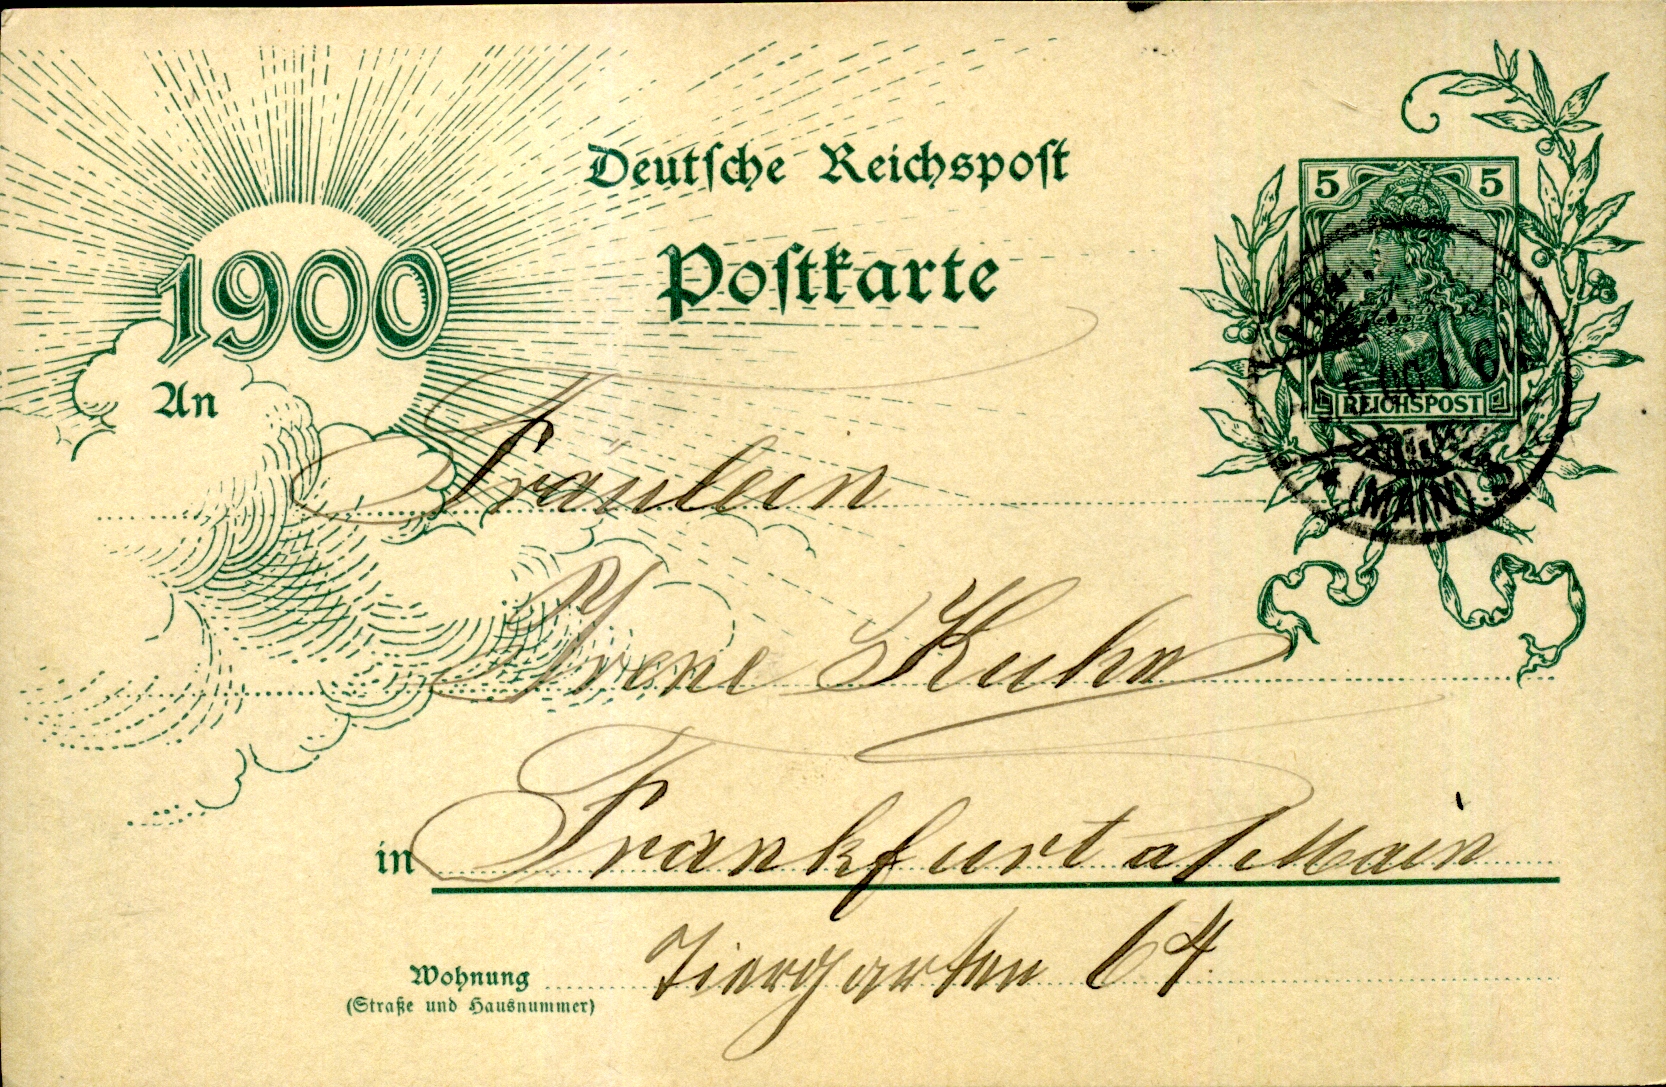 Deutsche Reichspost
Postkarte
5 5
REICHSPOST
(MAIN)
1900
An
Fräulein
Irene Kuhn
in Frankfurt a/Main
Wohnung Tiergarten 64.
(Straße und Hausnummer)